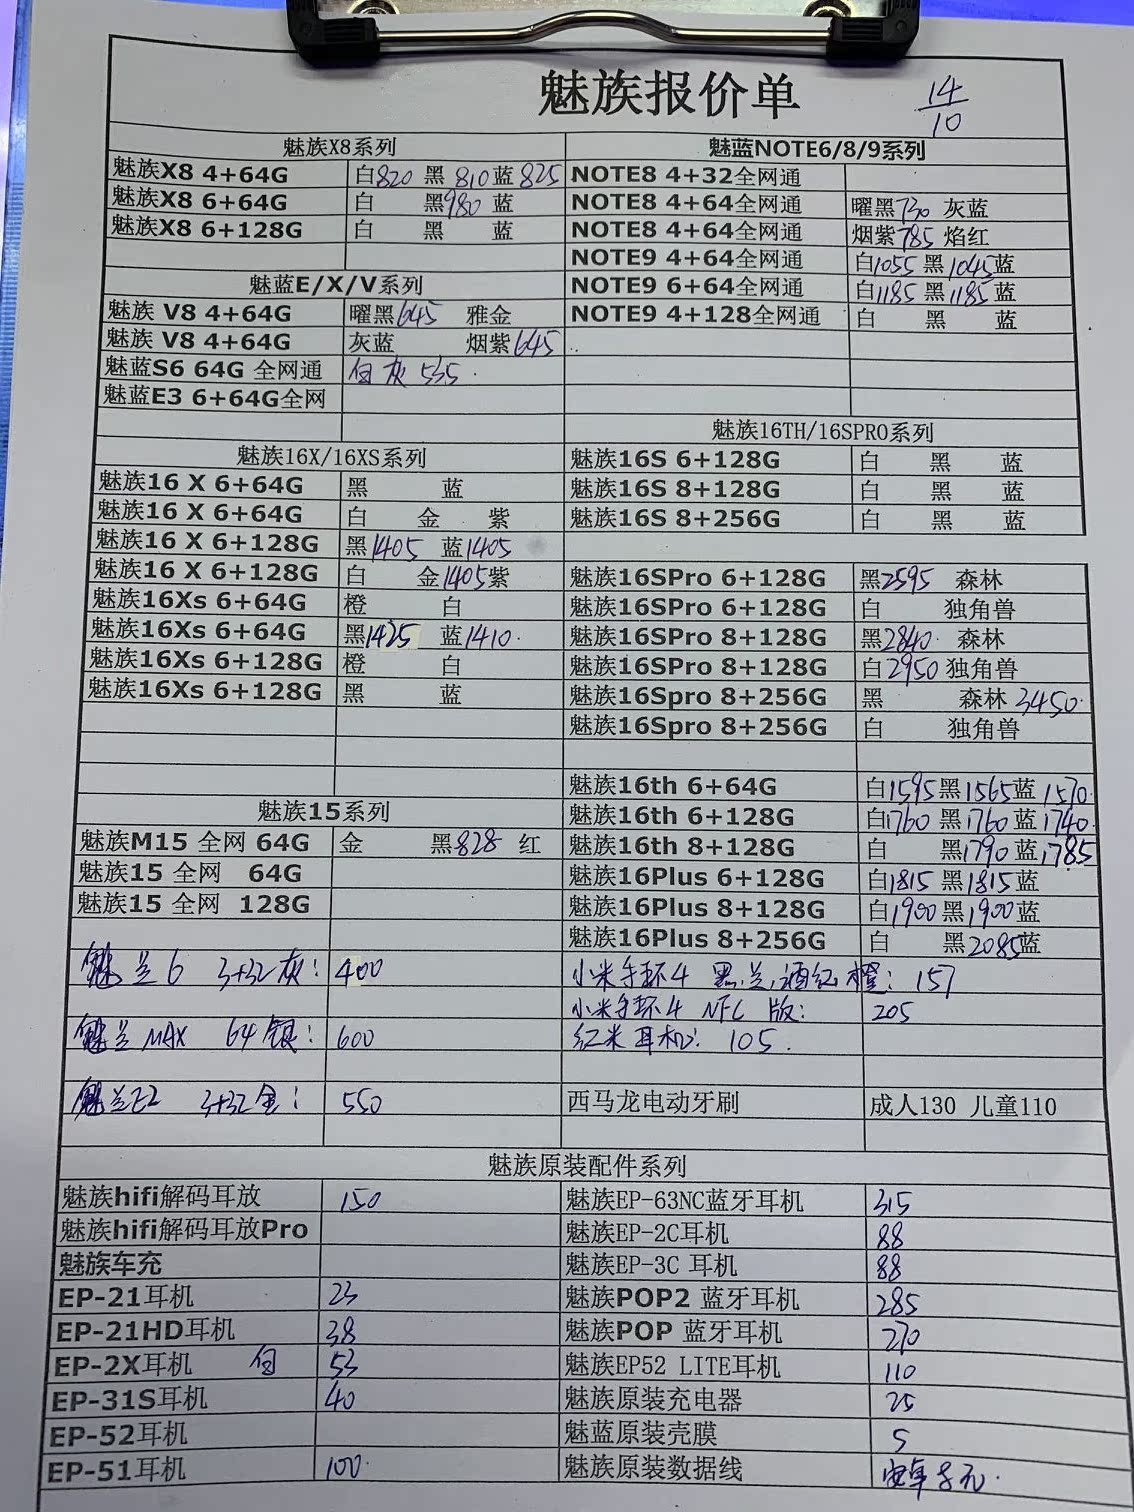 魅族报价单
14/10
魅族X8系列
魅族X8 4+64G 白820 黑810 蓝825
魅族X8 6+64G 白 黑980 蓝
魅族X8 6+128G 白 黑 蓝
魅蓝E/X/V系列
魅族 V8 4+64G 曜黑645 雅金
魅族 V8 4+64G 灰蓝 烟紫645
魅蓝S6 64G 全网通 白灰 535
魅蓝E3 6+64G全网
魅族16X/16XS系列
魅族16 X 6+64G 黑 蓝
魅族16 X 6+64G 白 金 紫
魅族16 X 6+128G 黑1405 蓝1405
魅族16 X 6+128G 白 金1405 紫
魅族16Xs 6+64G 橙 白
魅族16Xs 6+64G 黑1425 蓝1410
魅族16Xs 6+128G 橙 白
魅族16Xs 6+128G 黑 蓝
魅族15系列
魅族M15 全网 64G 金 黑828 红
魅族15 全网 64G
魅族15 全网 128G
魅兰6 3+32灰: 400
魅兰MAX 64银: 600
魅兰E2 3+32金: 550
魅蓝NOTE6/8/9系列
NOTE8 4+32全网通
NOTE8 4+64全网通 曜黑730 灰蓝
NOTE8 4+64全网通 烟紫785 焰红
NOTE9 4+64全网通 白1055 黑1045 蓝
NOTE9 6+64全网通 白1185 黑1185 蓝
NOTE9 4+128全网通 白 黑 蓝
魅族16TH/16SPRO系列
魅族16S 6+128G 白 黑 蓝
魅族16S 8+128G 白 黑 蓝
魅族16S 8+256G 白 黑 蓝
魅族16SPro 6+128G 黑2595 森林
魅族16SPro 6+128G 白 独角兽
魅族16SPro 8+128G 黑2840 森林
魅族16SPro 8+128G 白2950 独角兽
魅族16Spro 8+256G 黑 森林3450
魅族16Spro 8+256G 白 独角兽
魅族16th 6+64G 白1595 黑1565 蓝1570
魅族16th 6+128G 白1760 黑1760 蓝1740
魅族16th 8+128G 白 黑1790 蓝1785
魅族16Plus 6+128G 白1815 黑1815 蓝
魅族16Plus 8+128G 白1900 黑1900 蓝
魅族16Plus 8+256G 白 黑2085 蓝
小米手环4 黑,兰,酒红 橙: 157
小米手环4 NFC 版: 205
红米耳机: 105
西马龙电动牙刷 成人130 儿童110
魅族原装配件系列
魅族hifi解码耳放 150
魅族hifi解码耳放Pro
魅族车充
EP-21耳机 23
EP-21HD耳机 38
EP-2X耳机 白 53
EP-31S耳机 40
EP-52耳机
EP-51耳机 100
魅族EP-63NC蓝牙耳机 315
魅族EP-2C耳机 88
魅族EP-3C 耳机 88
魅族POP2 蓝牙耳机 285
魅族POP 蓝牙耳机 270
魅族EP52 LITE耳机 110
魅族原装充电器 25
魅蓝原装壳膜 5
魅族原装数据线 安卓8元